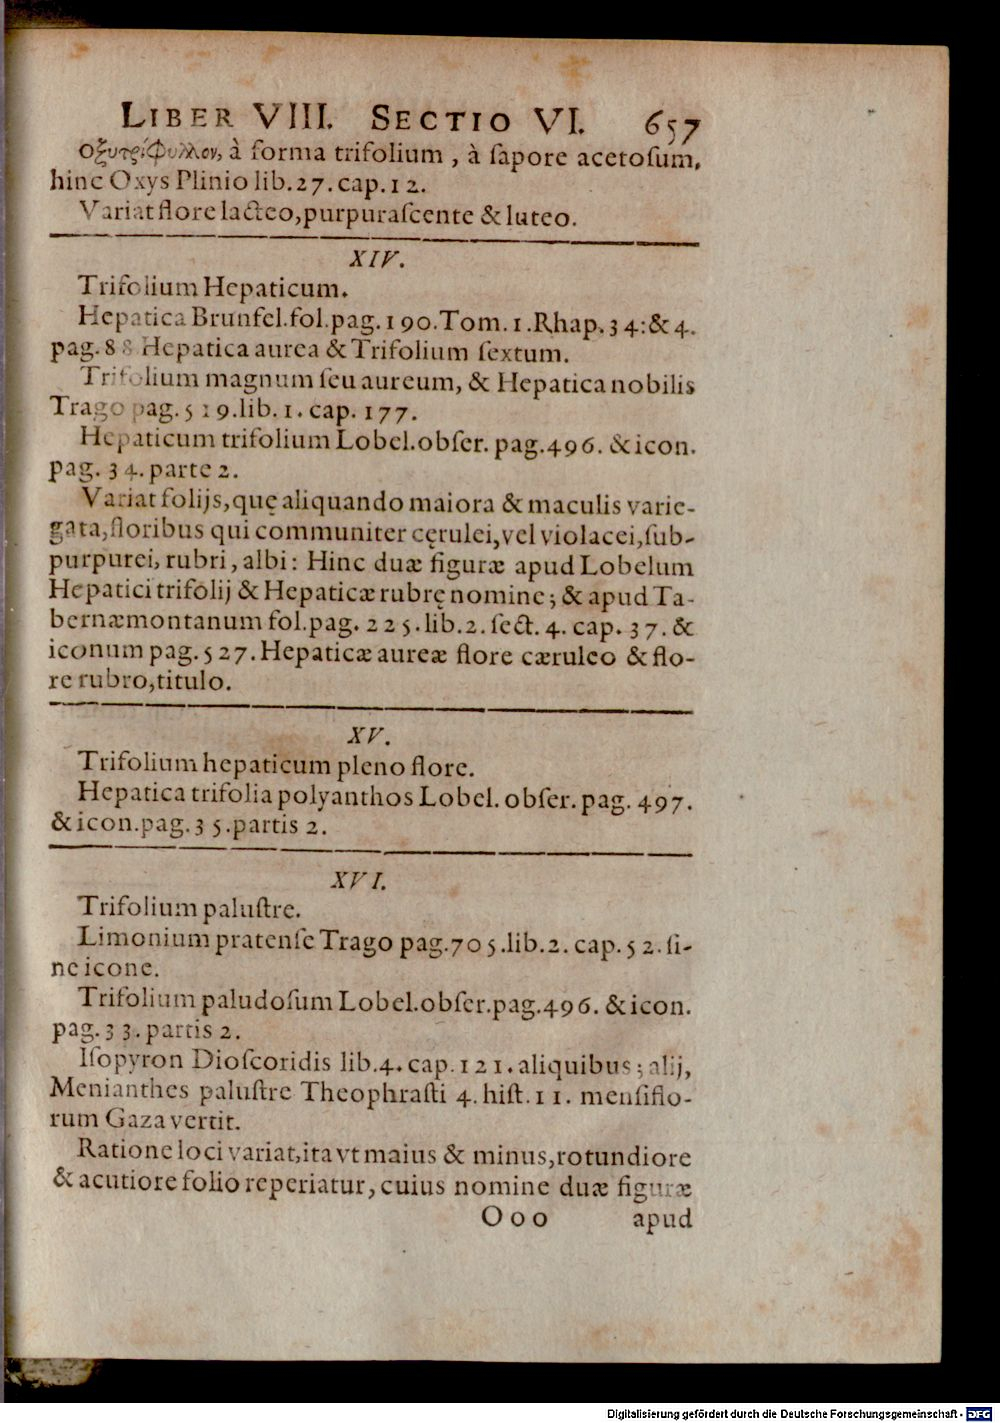 LIBER VIII. SECTIO VI. 657
οξυτρίφυλλον, à forma trifolium, à ſapore acetoſum,
hinc Oxys Plinio lib.27.cap.12.
Variat flore lacteo, purpuraſcente & luteo.
XIV.
Trifolium Hepaticum.
Hepatica Brunfel.fol.pag.190.Tom.1.Rhap.34:&4.
pag.88 Hepatica aurea & Trifolium ſextum.
Trifolium magnum ſeu aureum, & Hepatica nobilis
Trago pag.519.lib.1.cap.177.
Hepaticum trifolium Lobel.obſer. pag.496. & icon.
pag.34.parte 2.
Variat folijs, quę aliquando maiora & maculis varie-
gata, floribus qui communiter cęrulei, vel violacei, ſub-
purpurei, rubri, albi: Hinc duæ figuræ apud Lobelum
Hepatici trifolij & Hepaticæ rubrę nomine; & apud Ta-
bernæmontanum fol.pag.225.lib.2.ſect.4.cap.37.&
iconum pag.527.Hepaticæ aureæ flore cæruleo & flo-
re rubro, titulo.
XV.
Trifolium hepaticum pleno flore.
Hepatica trifolia polyanthos Lobel. obſer. pag. 497.
& icon.pag.35.partis 2.
XVI.
Trifolium paluſtre.
Limonium pratenſe Trago pag.705.lib.2.cap.52.ſi-
ne icone.
Trifolium paludoſum Lobel.obſer.pag.496. & icon.
pag.33.partis 2.
Iſopyron Dioſcoridis lib.4.cap.121.aliquibus; alij,
Menianthes paluſtre Theophraſti 4.hiſt.11. menſiflo-
rum Gaza vertit.
Ratione loci variat, ita vt maius & minus, rotundiore
& acutiore folio reperiatur, cuius nomine duæ figuræ
Ooo apud
Digitalisierung gefördert durch die Deutsche Forschungsgemeinschaft - DFG